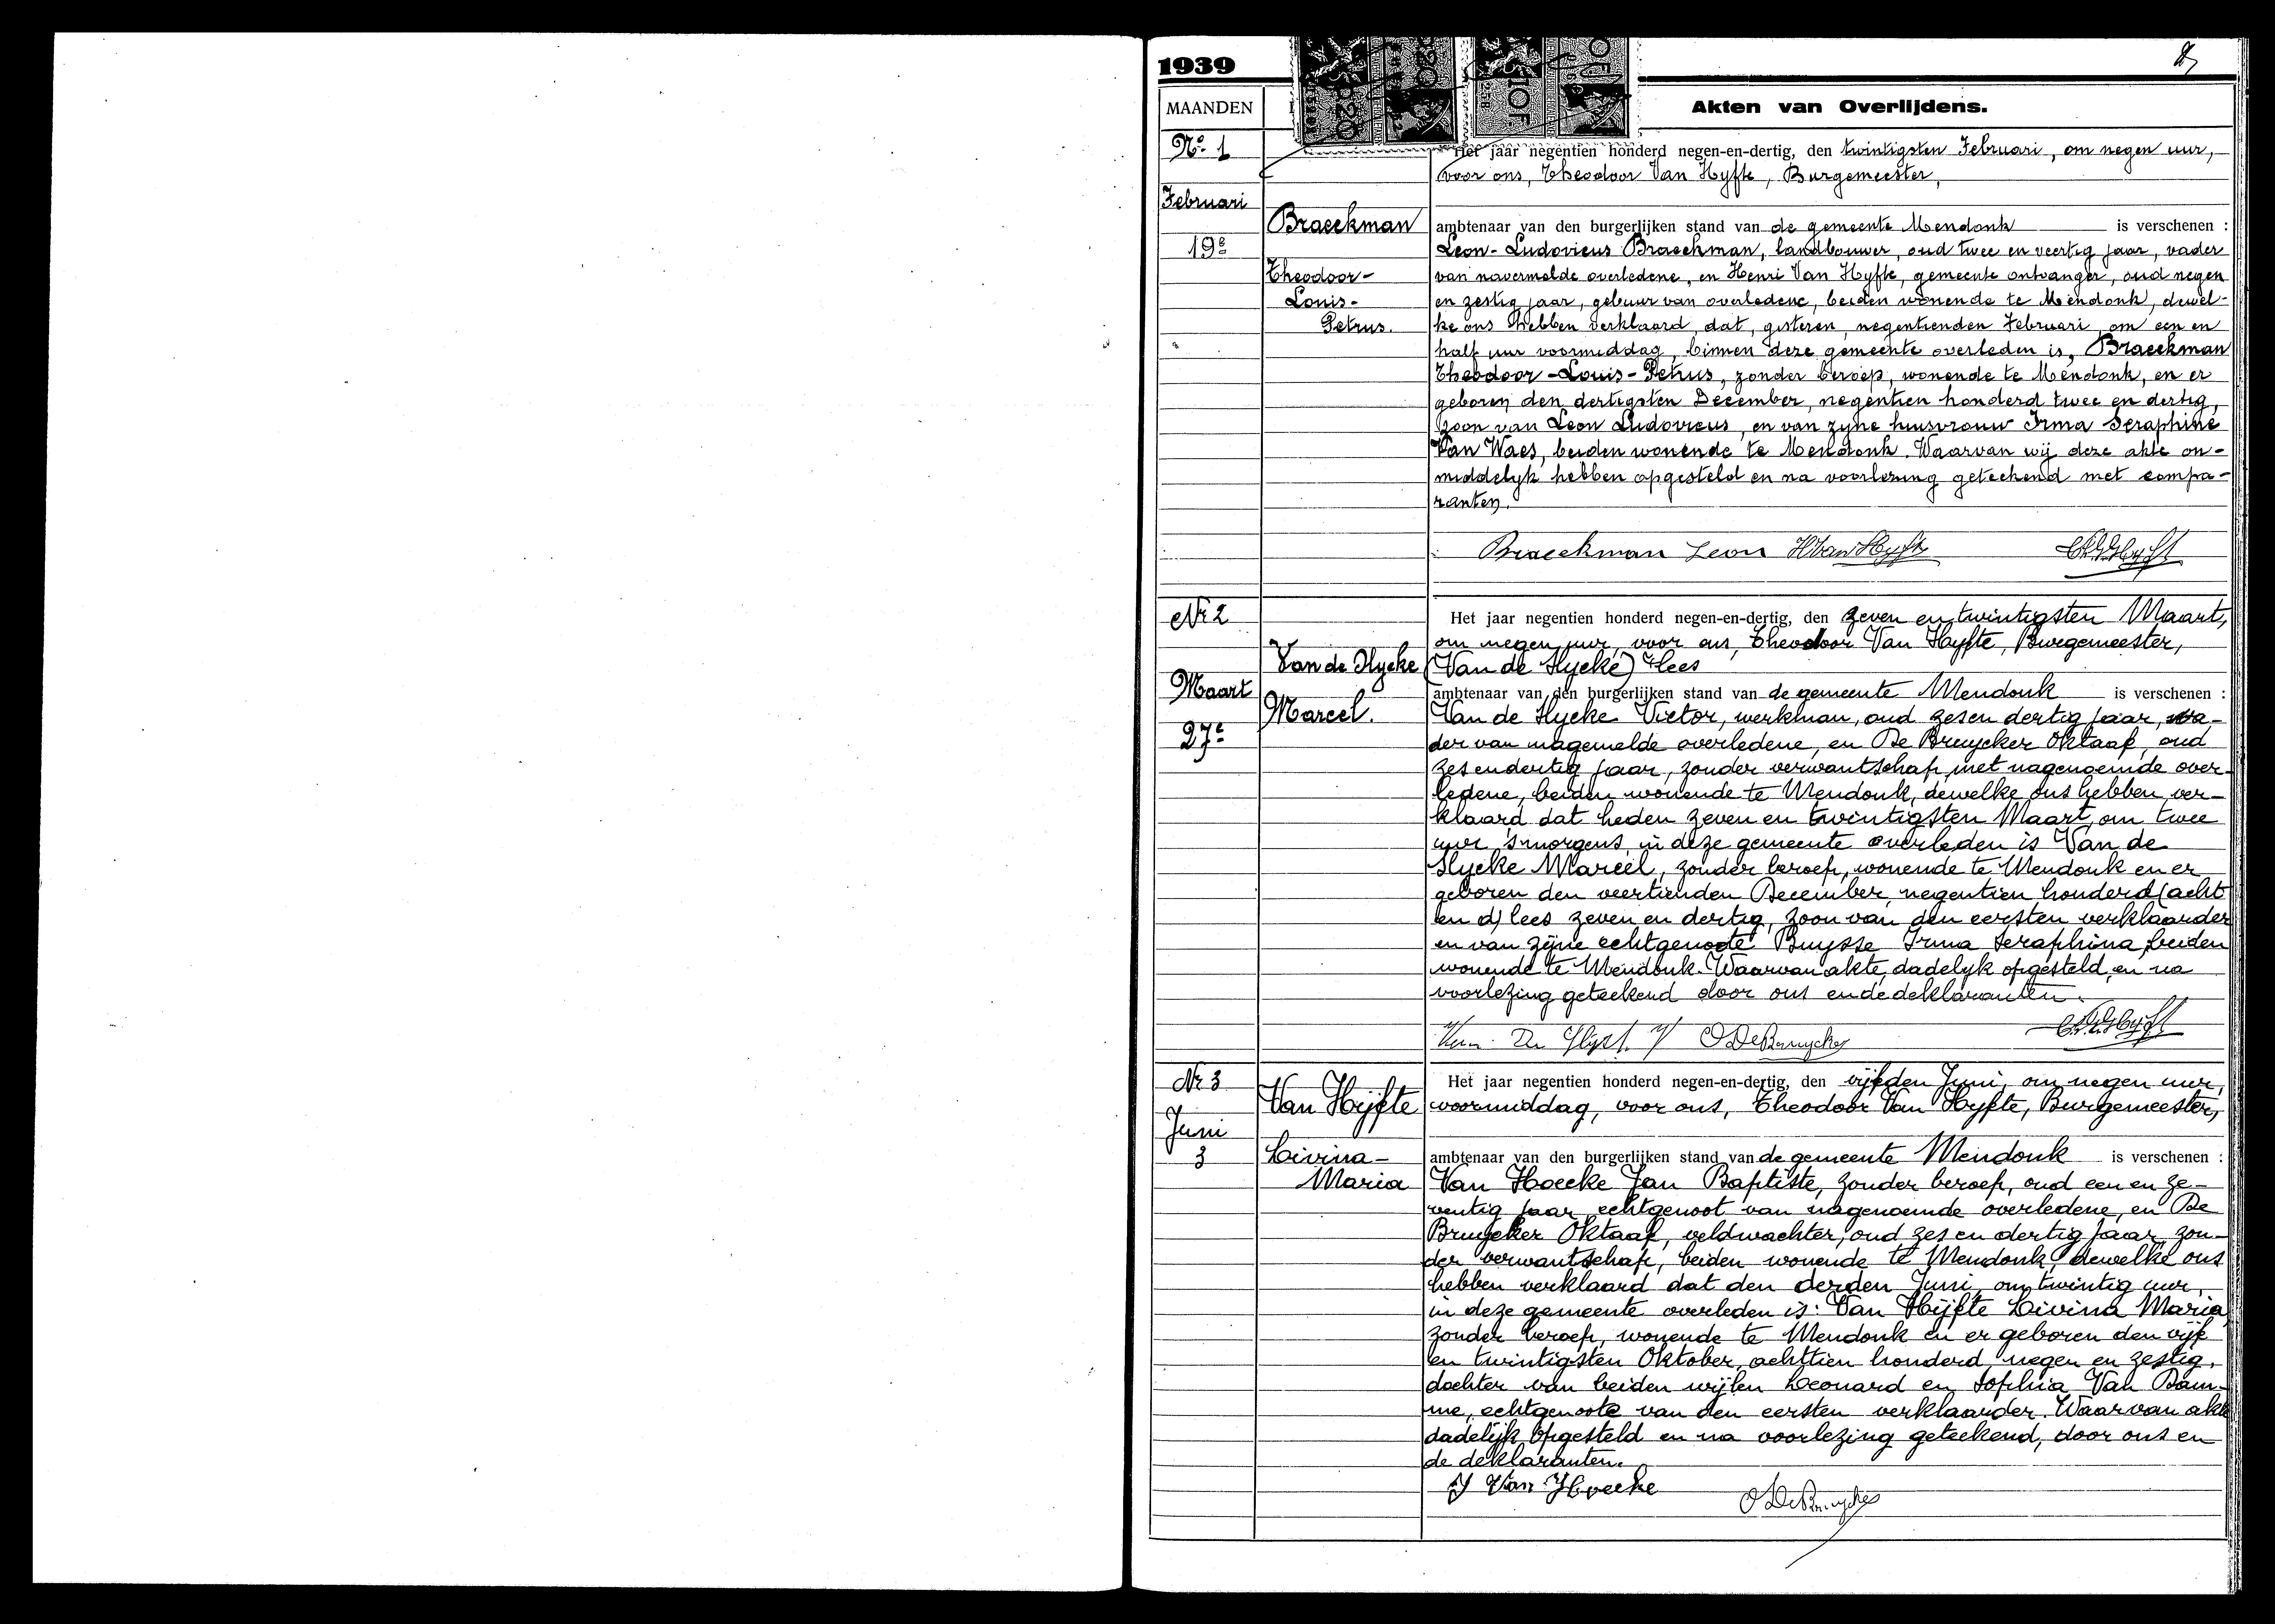 1939
MAANDEN
Akten van Overlijdens.
No. 1
Februari
19e
Braeckman
Theodoor-
Louis-
Petrus.
Het jaar negentien honderd negen-en-dertig, den twintigsten Februari, om negen uur,
voor ons, Theodoor Van Hyfte, Burgemeester,
ambtenaar van den burgerlijken stand van de gemeente Mendonk is verschenen :
Leon-Ludovicus Braeckman, landbouwer, oud twee en veertig jaar, vader
van navermelde overledene, en Henri Van Hyfte, gemeente ontvanger, oud negen
en zestig jaar, gebuur van overledene, beiden wonende te Mendonk, dewel-
ke ons hebben verklaard, dat, gisteren, negentienden Februari, om een en
half uur voormiddag, binnen deze gemeente overleden is, Braeckman
Theodoor-Louis-Petrus, zonder beroep, wonende te Mendonk, en er
geboren den dertigsten December, negentien honderd twee en dertig,
zoon van Leon Ludovicus, en van zyne huisvrouw Irma Seraphine
Van Waes, beiden wonende te Mendonk. Waarvan wij deze akte on-
middelyk hebben opgesteld en na voorlezing geteekend met compa-
ranten.
Braeckman Leon H Van Hyfte
Nr 2
Maart
27e
Van de Slycke
Marcel.
Het jaar negentien honderd negen-en-dertig, den zeven en twintigsten Maart,
om negen uur, voor ons, Theodoor Van Hyfte, Burgemeester,
(Van de Slycke) lees
ambtenaar van den burgerlijken stand van de gemeente Mendonk is verschenen :
Van de Slycke Victor, werkman, oud zesen dertig jaar, va-
der van nagemelde overledene, en De Bruycker Oktaaf, oud
zes en dertig jaar, zonder verwantschap met nagenoemde over-
ledene, beiden wonende te Mendonk, dewelke ons hebben ver-
klaard dat heden zeven en twintigsten Maart, om twee
uur 's morgens, in deze gemeente overleden is Van de
Slycke Marcel, zonder beroep, wonende te Mendonk en er
geboren den veertienden December, negentien honderd (acht
en d) lees zeven en dertig, zoon van den eersten verklaarder
en van zijne echtgenoote Buysse Irma Seraphina, beiden
wonende te Mendonk. Waarvan akte, dadelyk opgesteld, en na
voorlezing geteekend door ons en de deklaranten.
O De Bruycker
Nr 3
Juni
3
Van Hijfte
Livina-
Maria
Het jaar negentien honderd negen-en-dertig, den vijfden Juni, om negen uur,
voormiddag, voor ons, Theodoor Van Hyfte, Burgemeester,
ambtenaar van den burgerlijken stand van de gemeente Mendonk is verschenen :
Van Hoecke Jan Baptiste, zonder beroep, oud een en ze-
ventig jaar, echtgenoot van nagenoemde overledene, en De
Bruycker Oktaaf, veldwachter, oud zes en dertig jaar, zon-
der verwantschap, beiden wonende te Mendonk, dewelke ons
hebben verklaard dat den derden Juni, om twintig uur,
in deze gemeente overleden is: Van Hijfte Livina Maria
zonder beroep, wonende te Mendonk en er geboren den vijf
en twintigsten Oktober, achttien honderd, negen en zestig,
dochter van beiden wijlen Leonard en Sophia Van Dam-
me, echtgenoote van den eersten verklaarder. Waarvan akte
dadelijk opgesteld en na voorlezing geteekend, door ons en
de deklaranten.
J Van Hoecke
O De Bruycker